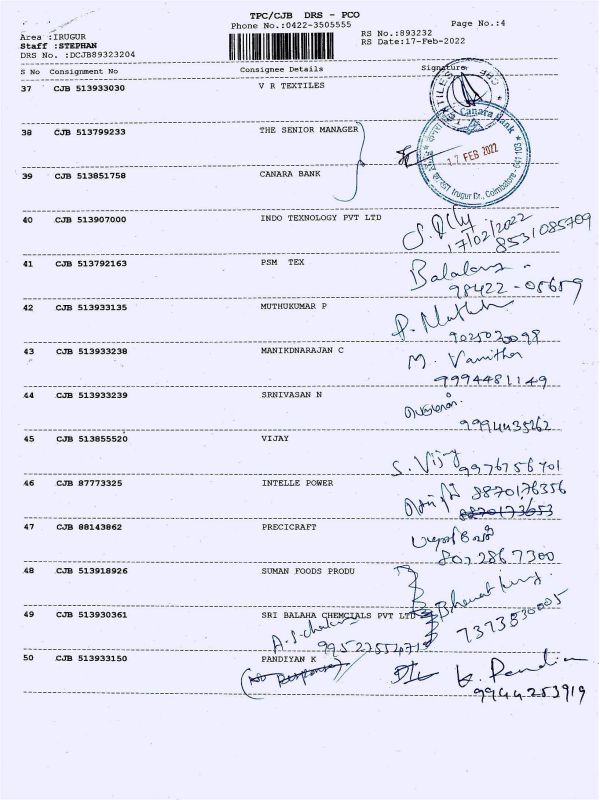 TPC/CJB DRS - PCO
Phone No.:0422-3505555
Page No.:4
Area :IRUGUR
RS No.:893232
Staff :STEPHAN
RS Date:17-Feb-2022
DRS No. :DCJB89323204
S No Consignment No Consignee Details Signature
37 CJB 513933030 V R TEXTILES
38 CJB 513799233 THE SENIOR MANAGER
Canara Bank
17 FEB 2022
Irugur Br., Coimbatore - 641 103
39 CJB 513851758 CANARA BANK
40 CJB 513907000 INDO TEXNOLOGY PVT LTD
17/02/2022
8531085709
41 CJB 513792163 PSM TEX
98422-05659
42 CJB 513933135 MUTHUKUMAR P
P. Muthu
9025020098
43 CJB 513933238 MANIKDNARAJAN C
M. Vanitha
9994481149
44 CJB 513933239 SRNIVASAN N
9994435262
45 CJB 513855520 VIJAY
S. Vijay 9976756701
46 CJB 87773325 INTELLE POWER
8870176356
8870173653
47 CJB 88143862 PRECICRAFT
8072867300
48 CJB 513918926 SUMAN FOODS PRODU
49 CJB 513930361 SRI BALAHA CHEMCIALS PVT LTD
7373830005
50 CJB 513933150 PANDIYAN K
(No Response)
K. Pandian
9944253919